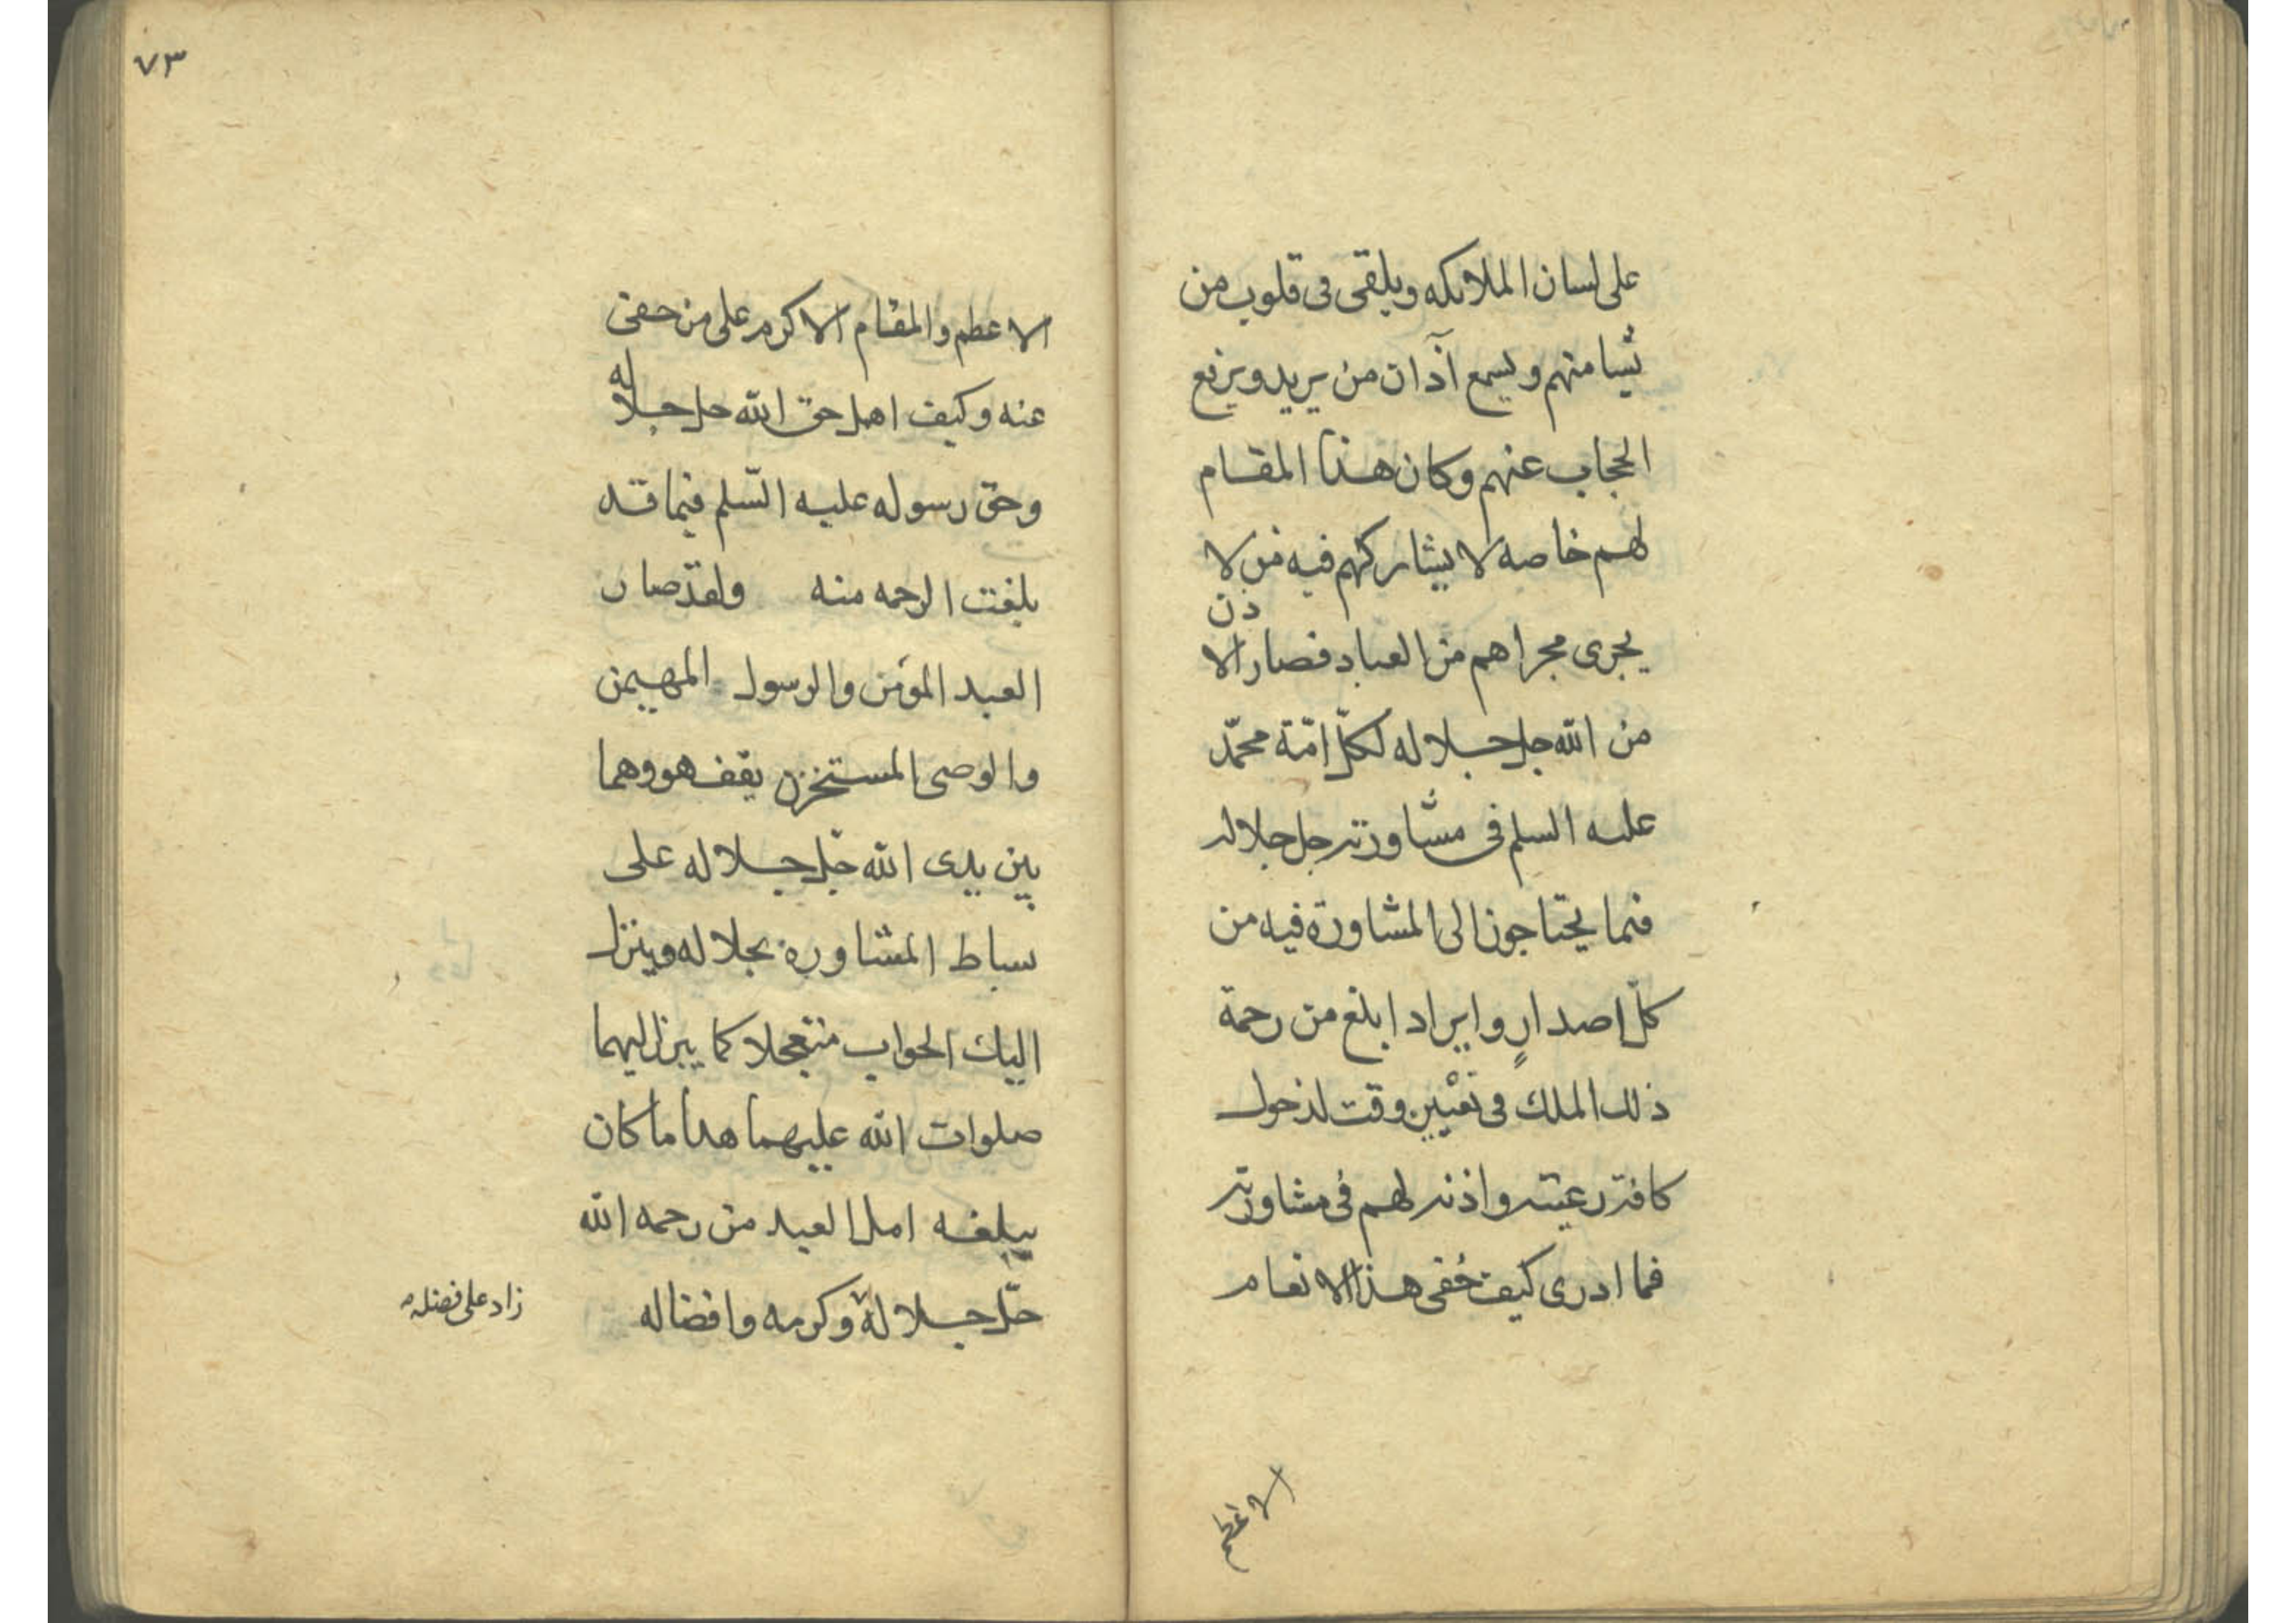 على لسان الملائكه ويلقى فى قلوب من
يشا منهم ويسمع آذان من يريد ويرفع
الحجاب عنهم وكان هذا المقام
لهم خاصه لا يشاركهم فيه من لا
يجرى مجراهم من العباد فصار الاذن
من الله جل جلاله لكلّ امّة محمّد
عليه السلم فى مشاورته جل جلاله
فيما يحتاجون الى المشاورة فيه من
كلّ اصدارٍ وايراد ابلغ من رحمة
ذلك الملك فى تعْيين وقت لدخول
كافة رعيته واذنه لهم فى مشاورته
فما ادرى كيف خُفى هذا الانعام
الاعظم
٧٣
الاعظم والمقام الاكرم على من خفى
عنه وكيف اهمل حق الله جل جلاله
وحق رسوله عليه السّلم فيما قد
بلغت الرحمه منه ولقد صار
العبد المؤمن والرسول المهيمن
والوصى المستخزن يقف هو وهما
بين يدى الله جلّ جلاله على
بساط المشاورة بجلاله وينزل
اليك الجواب متعجلا كما ينزل اليهما
صلوات الله عليهما هذا ما كان
يبلغه امل العبد من رحمه الله
جلّ جلاله وكرمه وافضاله
زاد على فضله